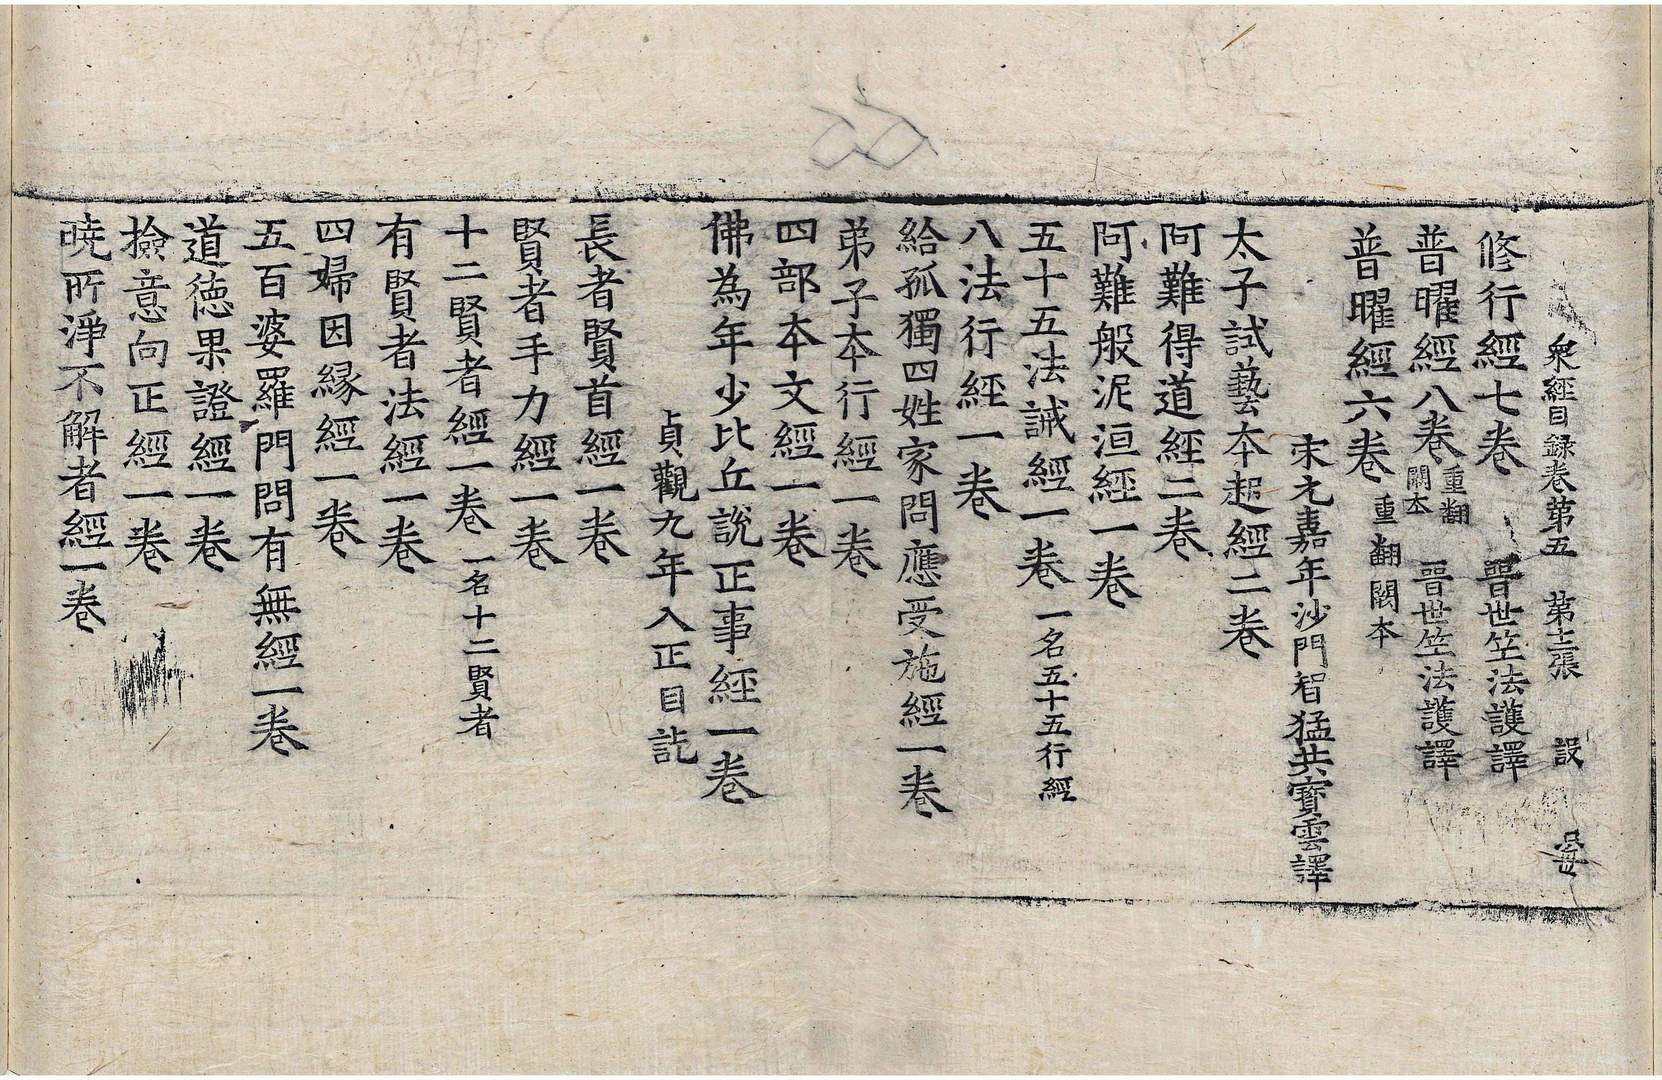 衆經目録卷第五 第十二張 設
修行經七卷 晉世竺法護譯
普曜經八卷 重翻闕本 晉世竺法護譯
普曜經六卷 重翻闕本
宋元嘉年沙門智猛共寶雲譯
太子試藝本起經二卷
阿難得道經二卷
阿難般泥洹經一卷
五十五法誡經一卷 一名五十五行經
八法行經一卷
給孤獨四姓家問應受施經一卷
弟子本行經一卷
四部本文經一卷
佛為年少比丘說正事經一卷
貞觀九年入正目訖
長者賢首經一卷
賢者手力經一卷
十二賢者經一卷 一名十二賢者
有賢者法經一卷
四婦因縁經一卷
五百婆羅門問有無經一卷
道徳果證經一卷
撿意向正經一卷
曉所淨不解者經一卷